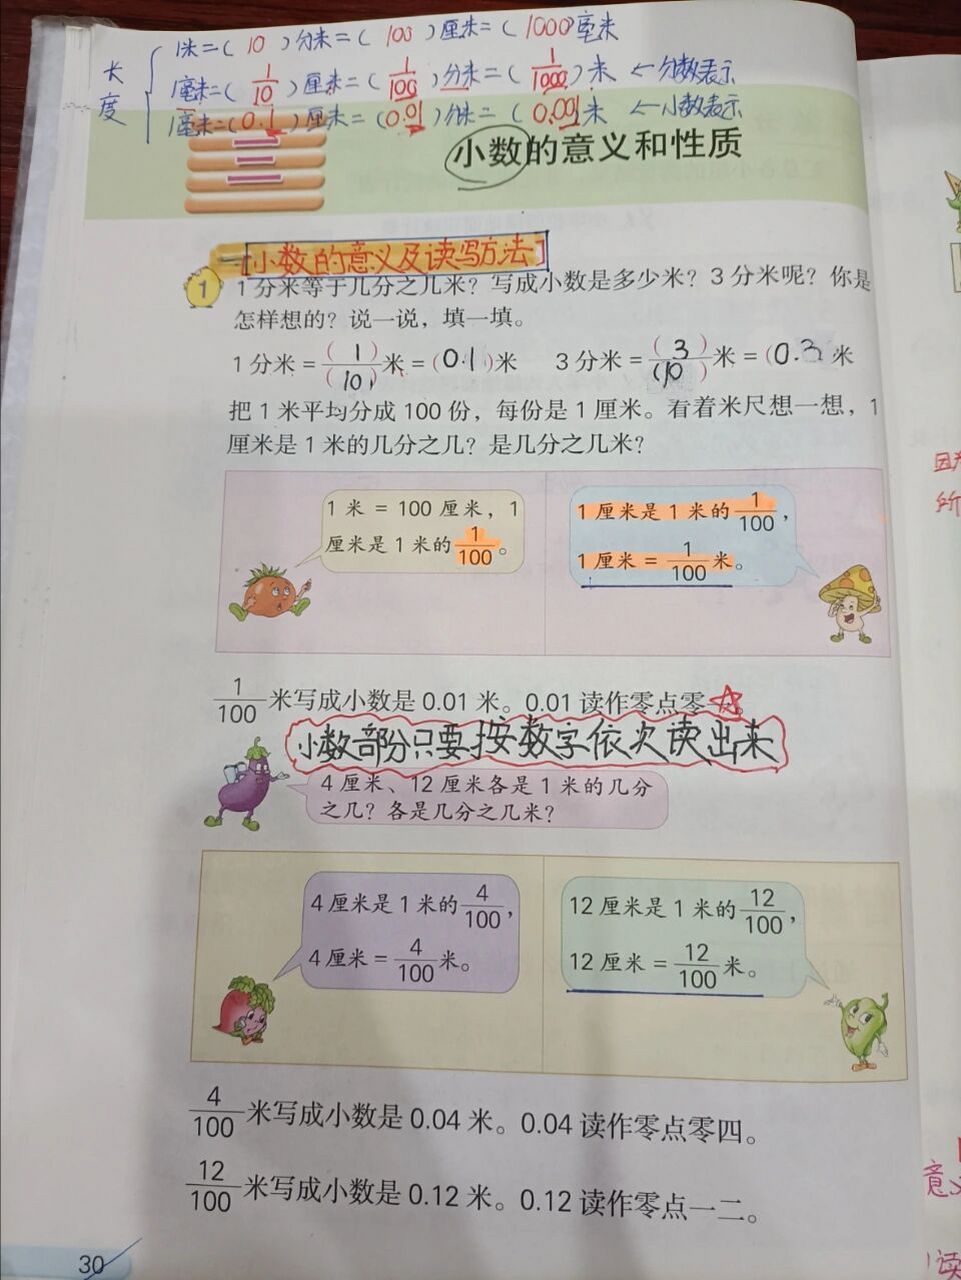 长度
1米=( 10 )分米=( 100 )厘米=( 1000)毫米
1毫米=( 1/10 )厘米=( 1/100 )分米=( 1/1000 )米 ←分数表示
1毫米=( 0.1 )厘米=( 0.01 )分米=( 0.001米 ←小数表示
三 小数的意义和性质
一[小数的意义及读写方法]
1 1分米等于几分之几米？写成小数是多少米？3分米呢？你是
怎样想的？说一说，填一填。
1分米=( 1 )/( 10 )米=(0.1)米 3分米=( 3 )/( 10 )米=(0.3 米
把1米平均分成100份，每份是1厘米。看着米尺想一想，1
厘米是1米的几分之几？是几分之几米？
1米=100厘米，1
厘米是1米的1/100。
1厘米是1米的1/100，
1厘米=1/100米。
1/100米写成小数是0.01米。0.01读作零点零一。
小数部分只要按数字依次读出来
4厘米、12厘米各是1米的几分
之几？各是几分之几米？
4厘米是1米的4/100，
4厘米=4/100米。
12厘米是1米的12/100，
12厘米=12/100米。
4/100米写成小数是0.04米。0.04读作零点零四。
12/100米写成小数是0.12米。0.12读作零点一二。
30
所
意义
读